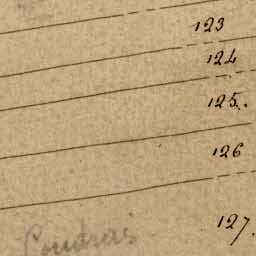 123
124
125.
126
127.